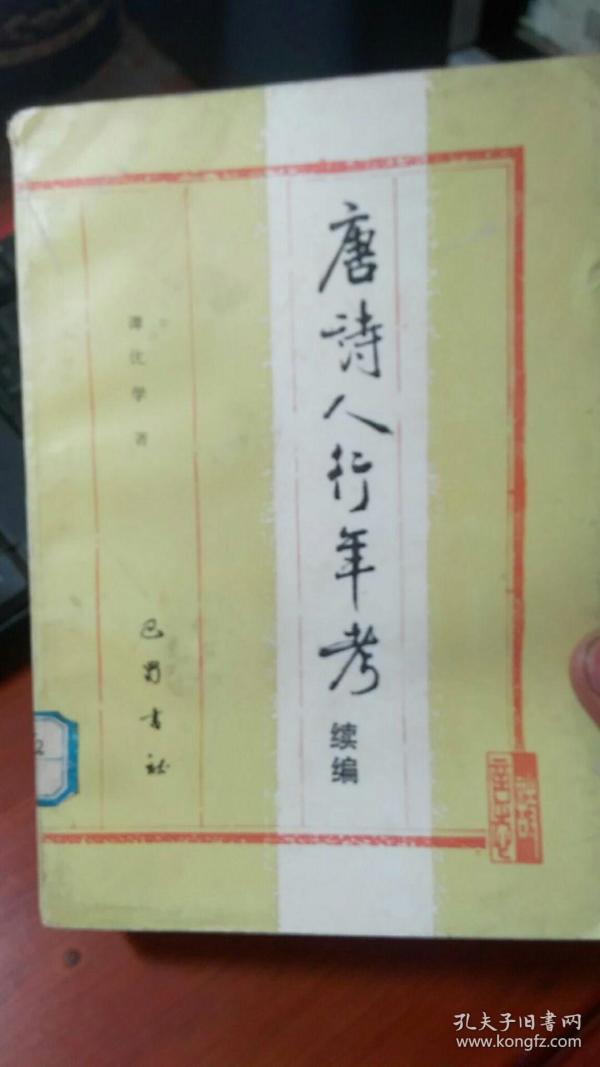 唐诗人行年考
续编
谭优学 著
巴蜀书社
2
孔夫子旧书网
www.kongfz.com